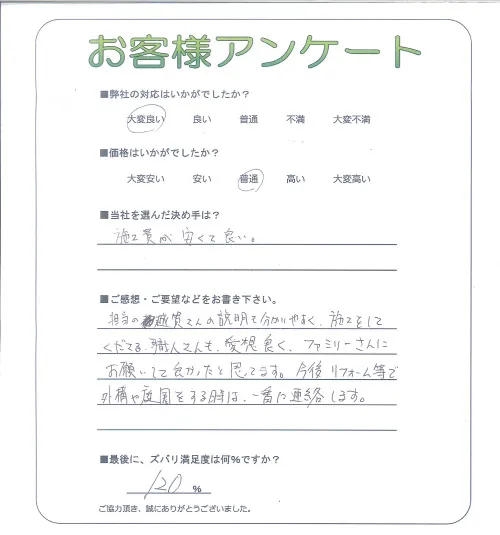 お客様アンケート
■弊社の対応はいかがでしたか？
大変良い 良い 普通 不満 大変不満
■価格はいかがでしたか？
大変安い 安い 普通 高い 大変高い
■当社を選んだ決め手は？
施工費が安くて良い。
■ご感想・ご要望などをお書き下さい。
担当の さんの説明も分かりやすく、施工をして
くださる職人さんも、愛想良く、ファミリーさんに
お願いして良かったと思ってます。今後リフォーム等で
外構や庭周をする時は、一番に連絡します。
■最後に、ズバリ満足度は何％ですか？
120 %
ご協力頂き、誠にありがとうございました。